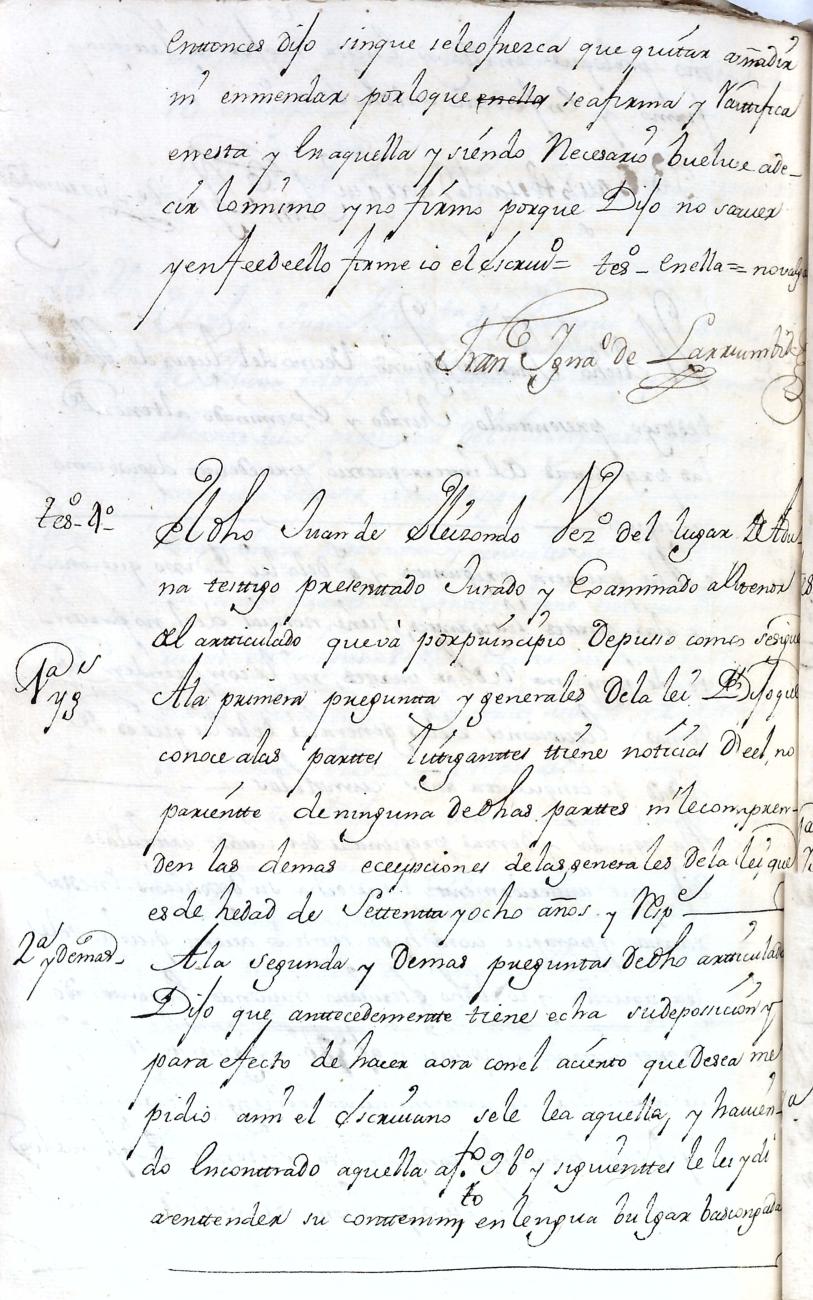 Entonces dijo sinque seleofrezca que quitar añadir
ni enmendar porloque enella seafirma y Rattifica
enesta y Enaquella y siendo Necesario buelve ade-
cir lomismo yno firmo porque Dijo no saver
yenfeedeello firme io el escriuº = tesº - enella = no valga
Franco Ygnaº de Larrumbide
tesº 4º
El dho Juan de Elizondo Vezº del lugar de Adu-
na testtigo presenttado Jurado y Examinado alttenor
del artticulado que và porprincipio Depusso como sesigue
1ª y gs
Ala primera preguntta y generales Dela lei Dijo que
conoce alas parttes littiganttes ttiene noticias Deel, no
parientte deninguna dedhas parttes ni lecompren-
den las demas ecepsciones delas generales Dela lei que
es de hedad de Settentta yocho años y Respe
2ª y demas
Ala segunda y Demas preguntas dedho artticulado
Dijo que anttecedementte tiene echa sudeposicion y
para efecto de hacer aora conel acientto que Desea me
pidio ami el escriuano sele lea aquella, y havien-
do Enconttrado aquella afº 96º y siguienttes le lei ydi
aenttender su conttenimto enlengua bulgar bascongada